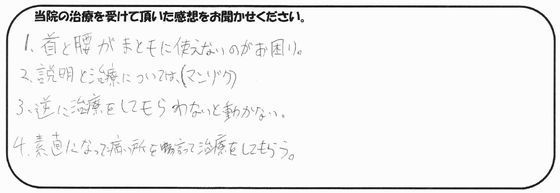 当院の治療を受けて頂いた感想をお聞かせください。
1、首と腰がまともに使えないのがお困り。
2、説明と治療については、(マンゾク)
3、逆に治療をしてもらわないと動かない。
4、素直になって痛い所を言って治療をしてもらう。